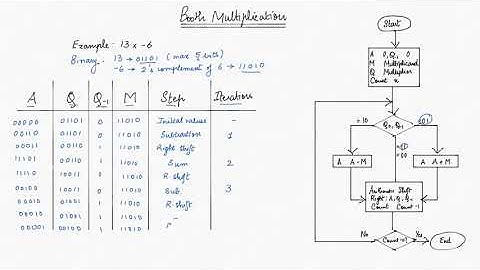 Booth Multiplication
Example: 13 x -6
Binary: 13 → 01101 (max 5 bits)
-6 → 2's complement of 6 → 11010
A Q Q-1 M Step Iteration
00000 01101 0 11010 Initial values -
00110 01101 0 11010 Subtraction 1
00011 00110 1 11010 Right shift
11101 00110 1 11010 Sum 2
11110 10011 0 11010 R. shift
00100 10011 0 11010 Sub. 3
00010 01001 1 11010 R. shift
00010 01001 1 11010 -
00001 00100 1 11010
Start
A 0, Q-1 0
M Multiplicand
Q Multiplier
Count n
= 10
Q0, Q-1
= 01
= 11
= 00
A A-M
A A+M
Arithmetic Shift
Right: A, Q, Q-1
Count Count-1
No
Count=0?
Yes
End